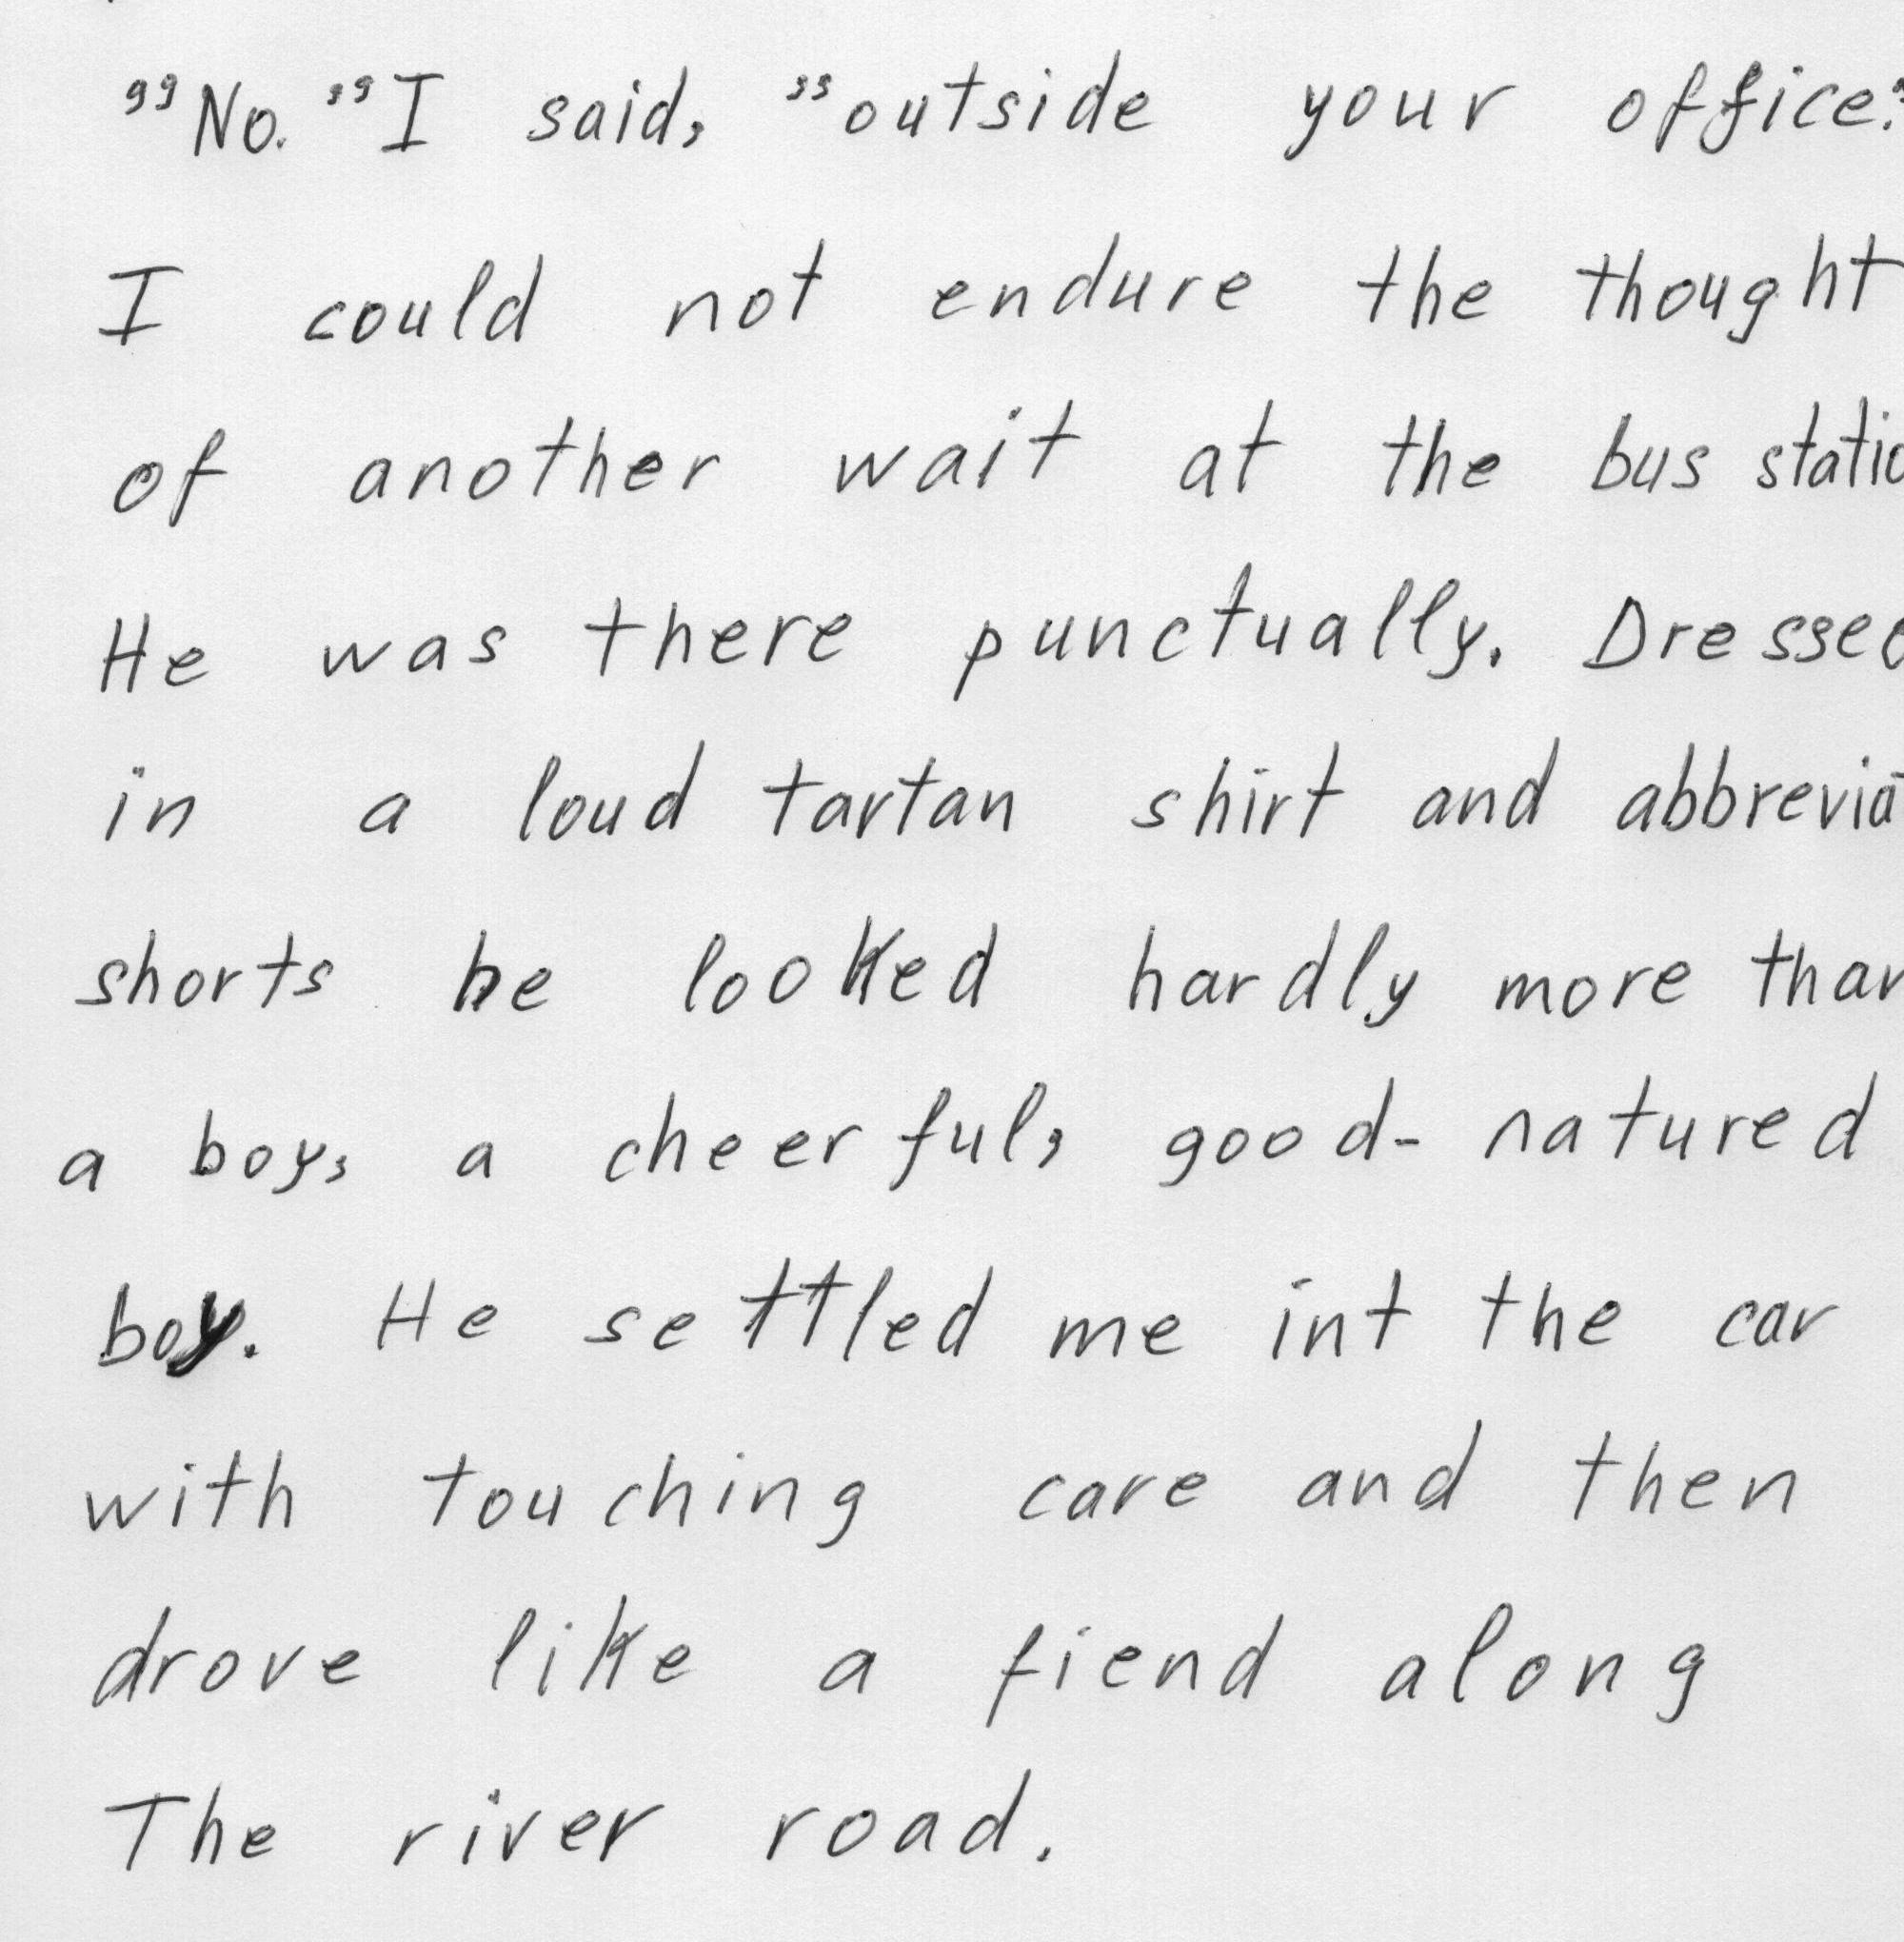 "No." I said, "outside your office."
I could not endure the thought
of another wait at the bus statio
He was there punctually. Dressed
in a loud tartan shirt and abbrevia
shorts he looked hardly more than
a boy, a cheerful, good-natured
boy. He settled me int the car
with touching care and then
drove like a fiend along
The river road.